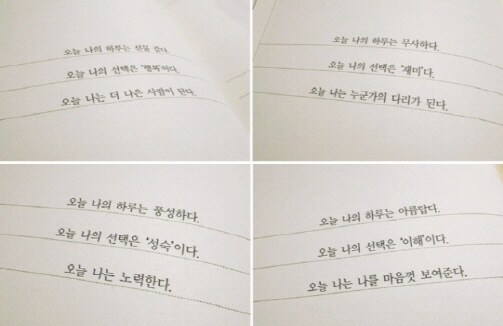 오늘 나의 하루는 선물 준다.
오늘 나의 선택은 '행복'이다.
오늘 나는 더 나은 사람이 된다.
오늘 나의 하루는 무사하다.
오늘 나의 선택은 '재미'다.
오늘 나는 누군가의 다리가 된다.
오늘 나의 하루는 풍성하다.
오늘 나의 선택은 '성숙'이다.
오늘 나는 노력한다.
오늘 나의 하루는 아름답다.
오늘 나의 선택은 '이해'이다.
오늘 나는 나를 마음껏 보여준다.